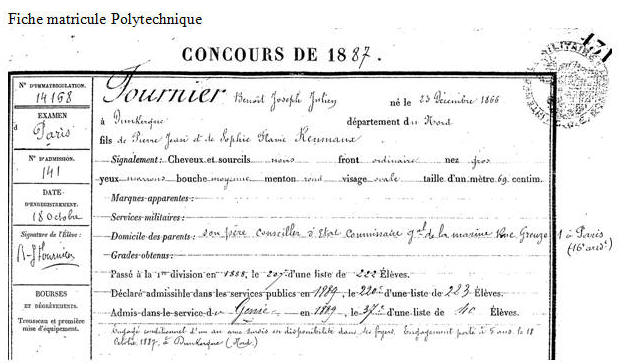 Fiche matricule Polytechnique
CONCOURS DE 1887.
N° D'IMMATRICULATION.
14168
EXAMEN
d Paris
N° D'ADMISSION.
141
DATE
D'ENREGISTREMENT.
18 Octobre
Signature de l'Élève:
B. J. Fournier
BOURSES
ET DÉGRÈVEMENTS.
Trousseau et première
mise d'équipement.
Fournier Benoît Joseph Julien né le 23 Décembre 1866
à Dunkerque département du Nord
fils de Pierre Jean et de Sophie Flavie Reumaux
Signalement: Cheveux et sourcils noirs front ordinaire nez gros
yeux marrons bouche moyenne menton rond visage ovale taille d'un mètre 69 centim.
Marques apparentes:
Services militaires:
Domicile des parents: son père conseiller d'Etat commissaire gal de la marine Rue Greuze 1 à Paris
(16e arrdt)
Grades obtenus:
Passé à la 1re division en 1888, le 207e d'une liste de 222 Élèves.
Déclaré admissible dans les services publics en 1889, le 220e d'une liste de 223 Élèves.
Admis dans le service du Génie en 1889, le 37e d'une liste de 40 Élèves.
Engagé conditionnel d'un an mis en disponibilité dans ses foyers. Engagement porté à 5 ans le 18
Octobre 1887, à Dunkerque (Nord).